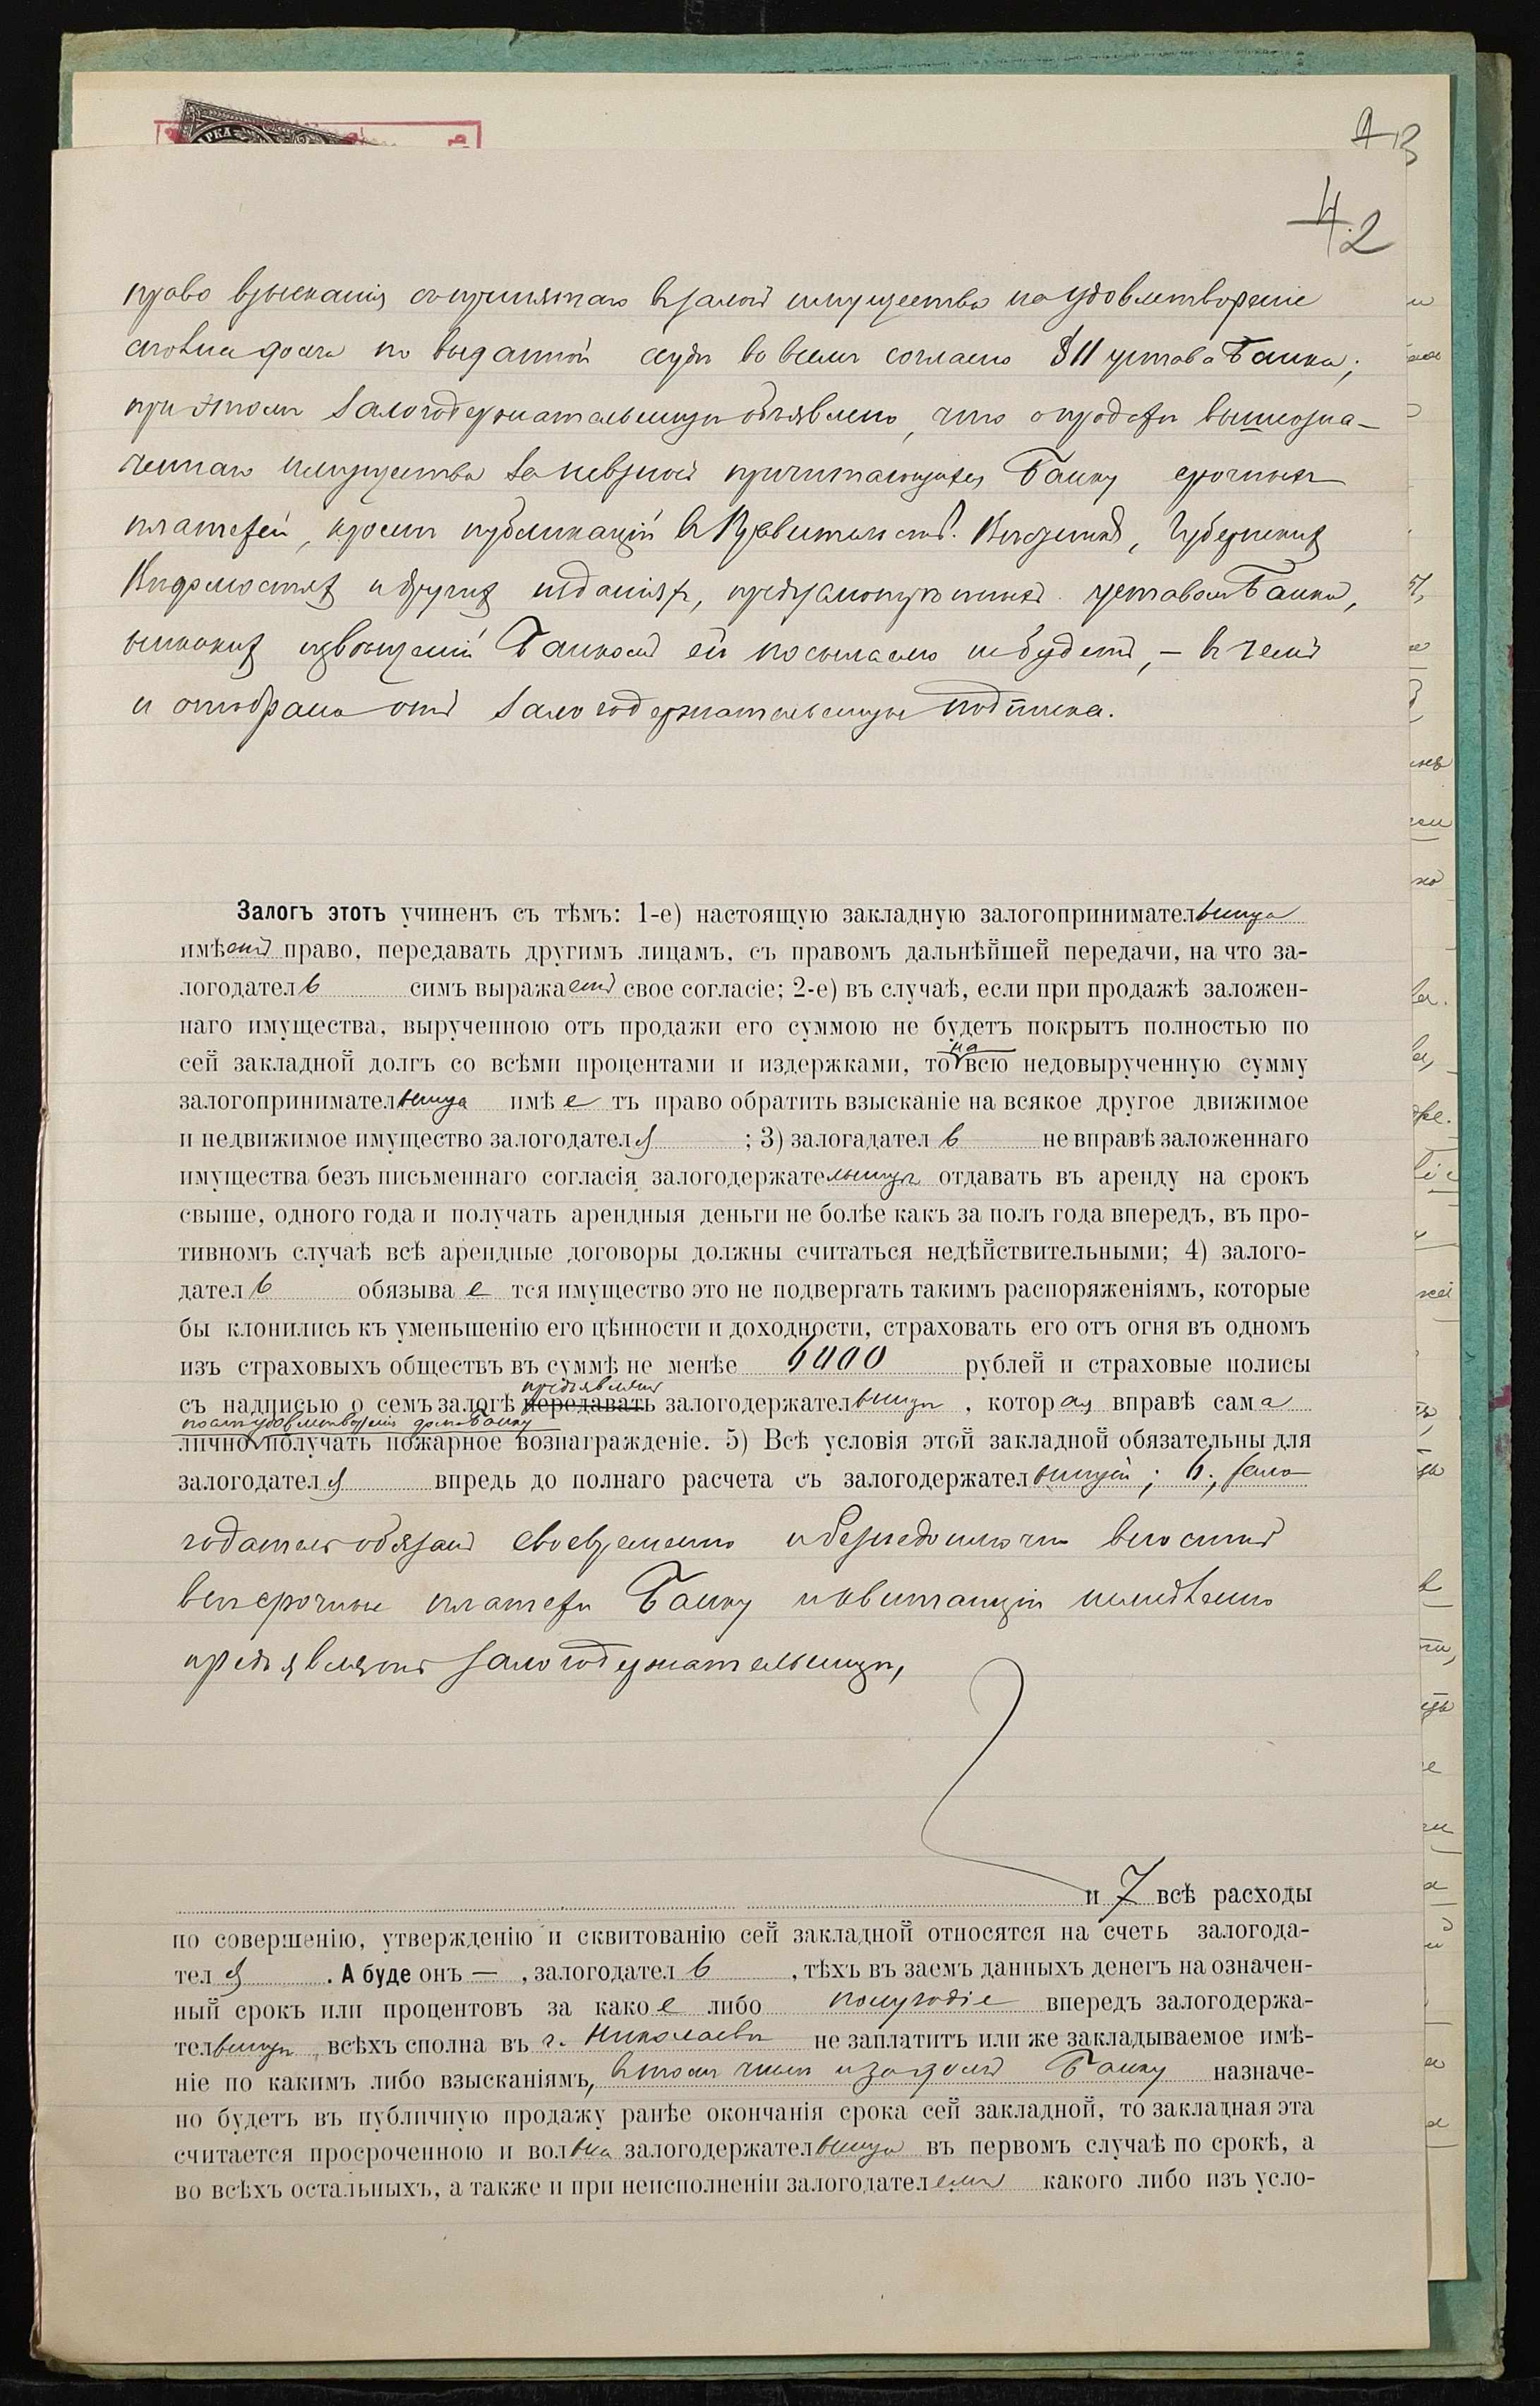 МАРКА
4 13
4 2
право взысканія съ принятаго въ залогъ имущества на удовлетвореніе
долга по выданной ссудѣ во всемъ согласно § 11 устава Банка;
при этомъ залогодержательницѣ объявлено, что о продажѣ вышеозна-
ченнаго имущества за невзносъ причитающихся Банку срочныхъ
платежей, кромѣ публикацій въ Правительств. Вѣстникѣ, Губернскихъ
Вѣдомостяхъ и другихъ изданіяхъ, предусмотрѣнныхъ уставомъ Банка,
никакихъ извѣщеній Банкомъ ей посылаемо не будетъ, – въ чемъ
и отобрана отъ залогодержательницы подписка.
Залогъ этотъ учиненъ съ тѣмъ: 1-е) настоящую закладную залогопринимательница
имѣетъ право, передавать другимъ лицамъ, съ правомъ дальнѣйшей передачи, на что за-
логодатель симъ выражаетъ свое согласіе; 2-е) въ случаѣ, если при продажѣ заложен-
наго имущества, вырученною отъ продажи его суммою не будетъ покрытъ полностью по
на
сей закладной долгъ со всѣми процентами и издержками, то всю недовырученную сумму
залогопринимательница имѣетъ право обратить взысканіе на всякое другое движимое
и недвижимое имущество залогодателя ; 3) залагадатель не вправѣ заложеннаго
имущества безъ письменнаго согласія залогодержательницы отдавать въ аренду на срокъ
свыше, одного года и получать арендныя деньги не болѣе какъ за полъ года впередъ, въ про-
тивномъ случаѣ всѣ арендные договоры должны считаться недѣйствительными; 4) залого-
датель обязывается имущество это не подвергать такимъ распоряженіямъ, которые
бы клонились къ уменьшенію его цѣнности и доходности, страховать его отъ огня въ одномъ
изъ страховыхъ обществъ въ суммѣ не менѣе рублей и страховые полисы
предъявлять
съ надписью о семъ залогѣ передавать залогодержательницѣ , которая вправѣ сама
по удовлетвореніи долга Банку
лично получать пожарное вознагражденіе. 5) Всѣ условія этой закладной обязательны для
залогодателя впредь до полнаго расчета съ залогодержательницей ; 6; зало-
годатель обязанъ своевременно и безнедоимочно вносить
всѣ срочные платежи Банку и квитанціи немедленно
предъявлять залогодержательницѣ,
и 7 всѣ расходы
по совершенію, утвержденію и сквитованію сей закладной относятся на счетъ залогода-
теля . А буде онъ — , залогодатель , тѣхъ въ заемъ данныхъ денегъ на означен-
ный срокъ или процентовъ за какое либо полугодіе впередъ залогодержа-
тельницѣ всѣхъ сполна въ г. Николаевѣ не заплатитъ или же закладываемое имѣ-
ніе по какимъ либо взысканіямъ, въ томъ числѣ и за долгъ Банку назначе-
но будетъ въ публичную продажу ранѣе окончанія срока сей закладной, то закладная эта
считается просроченною и вольна залогодержательница въ первомъ случаѣ по срокѣ, а
во всѣхъ остальныхъ, а также и при неисполненіи залогодателемъ какого либо изъ усло-